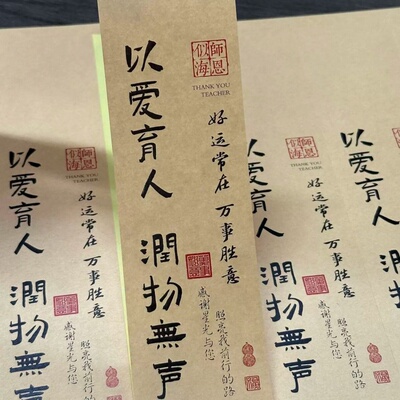 以爱育人 潤物無声
師恩似海
THANK YOU
TEACHER
好运常在 万事胜意
感谢星光与您
照亮我前行的路
以爱育人 潤物無声
師恩似海
THANK YOU
TEACHER
好运常在 万事胜意
感谢星光与您
潤物無声
師恩似海
THANK YOU
TEACHER
好运常在 万事胜意
感谢星光与您
照亮我前行的路
以爱育人 潤物無声